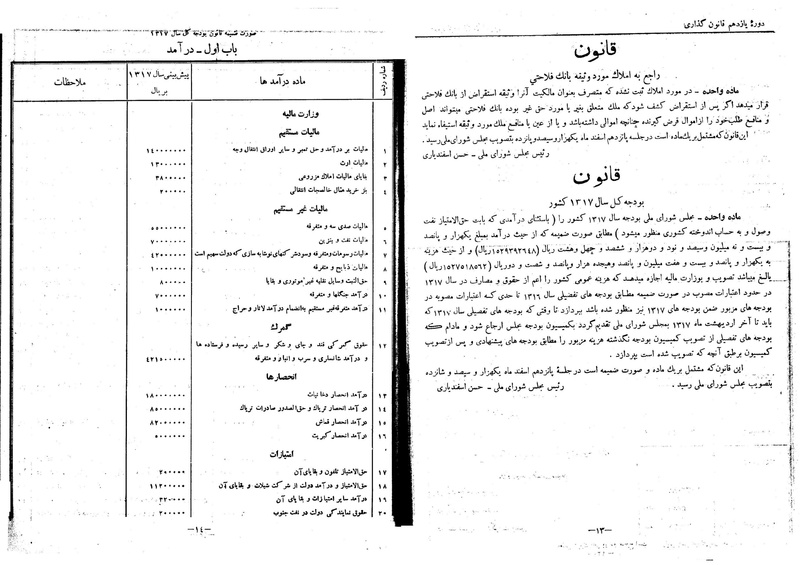 دورهٔ یازدهم قانون گذاری
قانون
راجع به املاک مورد وثیقه بانک فلاحتی
ماده واحده ـ در مورد املاک ثبت نشده که متصرف بعنوان مالکیت آنرا وثیقه استقراض از بانک فلاحتی
قرار میدهد اگر پس از استقراض کشف شود که ملک متعلق بغیر یا مورد حق غیر بوده بانک فلاحتی میتواند اصل
و منافع طلب خود را از اموال قرض گیرنده چنانچه اموالی داشته باشد و یا از عین یا منافع ملک مورد وثیقه استیفاء نماید
این قانون که مشتمل بر یک ماده است در جلسه پانزدهم اسفند ماه یکهزار و سیصد و پانزده بتصویب مجلس شورای ملی رسید.
رئیس مجلس شورای ملی ـ حسن اسفندیاری
قانون
بودجه کل سال ۱۳۱۷ کشور
ماده واحده ـ مجلس شورای ملی بودجه سال ۱۳۱۷ کشور را (باستثنای درآمدی که بابت حق الامتیاز نفت
وصول و به حساب اندوخته کشوری منظور میشود) مطابق صورت ضمیمه که از حیث درآمد بمبلغ یکهزار و پانصد
و بیست و نه میلیون وسیصد و نود و دوهزار و ششصد و چهل وهشت ریال (۱۵۲۹۳۹۲۶۴۸ریال) و از حیث هزینه
به یکهزار و پانصد و بیست و هفت میلیون و پانصد وهیجده هزار وپانصد و شصت و دوریال (۱۵۲۷۵۱۸۵۶۲ریال)
بالغ میباشد تصویب و بوزارت مالیه اجازه میدهد که هزینه عمومی کشور را اعم از حقوق و مصارف در سال ۱۳۱۷
در حدود اعتبارات مصوب در صورت ضمیمه مطابق بودجه های تفصیلی سال ۱۳۱۶ تا حدی که اعتبارات مصوبه در
بودجه های مزبور ضمن بودجه های ۱۳۱۷ نیز منظور شده باشد بپردازد تا وقتی که بودجه های تفصیلی سال ۱۳۱۷ که
باید تا آخر اردیبهشت ماه ۱۳۱۷ بمجلس شورای ملی تقدیم گردد بکمیسیون بودجه مجلس ارجاع شود و مادام که
بودجه های تفصیلی از تصویب کمیسیون بودجه نگذشته هزینه مزبور را مطابق بودجه های پیشنهادی و پس از تصویب
کمیسیون برطبق آنچه که تصویب شده است بپردازد.
این قانون که مشتمل بر یک ماده و صورت ضمیمه است در جلسهٔ پانزدهم اسفند ماه یکهزار و سیصد و شانزده
بتصویب مجلس شورای ملی رسید. رئیس مجلس شورای ملی ـ حسن اسفندیاری
ـ۱۳ـ
صورت ضمیمه قانون بودجه کل سال ۱۳۱۷
باب اول ـ درآمد
شماره ردیف ماده درآمد ها پیش بینی سال ۱۳۱۷ بریال ملاحظات
وزارت مالیه
مالیات مستقیم
۱ مالیات بر درآمد و حق تمبر و سایر اوراق انتقال وجه ۱۴۰۰۰۰۰۰۰
۲ مالیات ارث ۱۳۰۰۰۰۰
۳ بقایای مالیات املاک مزروعی ۳۸۰۰۰۰۰
۴ باز خرید مثال خالصجات انتقالی ۲۰۰۰۰۰
مالیات غیر مستقیم
۵ مالیات صدی سه و متفرقه ۵۵۰۰۰۰۰۰
۶ مالیات نفت و بنزین ۷۰۰۰۰۰۰۰
۷ مالیات رسومات ومتفرقه وسود شرکتهای نوشابه سازی که دولت سهیم است ۴۲۵۰۰۰۰۰
۸ مالیات ذبایح و متفرقه ۱۰۰۰۰۰۰۰
۹ حق الثبت وسایل نقلیه غیر موتوری و بقایا ۸۰۰۰۰۰
۱۰ درآمد جنگلها و متفرقه ۷۰۰۰۰۰۰
۱۱ درآمد متفرقه غیر مستقیم بانضمام درآمد لاتار و حراج ۱۰۰۰۰۰۰
گمرک
۱۲ حقوق گمرکی قند و چای و شکر و سایر رسیده و فرستاده ها
و درآمد بانداری و سرب و انبار و متفرقه ۴۲۱۵۰۰۰۰۰
انحصارها
۱۳ درآمد انحصار دخانیات ۱۸۰۰۰۰۰۰۰
۱۴ درآمد انحصار تریاک و حق الصدور صادرات تریاک ۸۵۰۰۰۰۰۰
۱۵ درآمد انحصار قماش ۸۲۰۰۰۰۰۰
۱۶ درآمد انحصار کبریت ۵۰۰۰۰۰۰
امتیازات
۱۷ حق الامتیاز تلفون و بقایای آن ۲۰۰۰۰۰
۱۸ حق الامتیاز و درآمد دولت از شرکت شیلات و بقایای آن ۱۱۲۰۰۰۰۰
۱۹ درآمد سایر امتیازات و بقایای آن ۳۲۰۰۰۰
۲۰ حقوق نمایندگی دولت در نفت جنوب ۲۰۰۰۰۰
ـ۱۴ـ